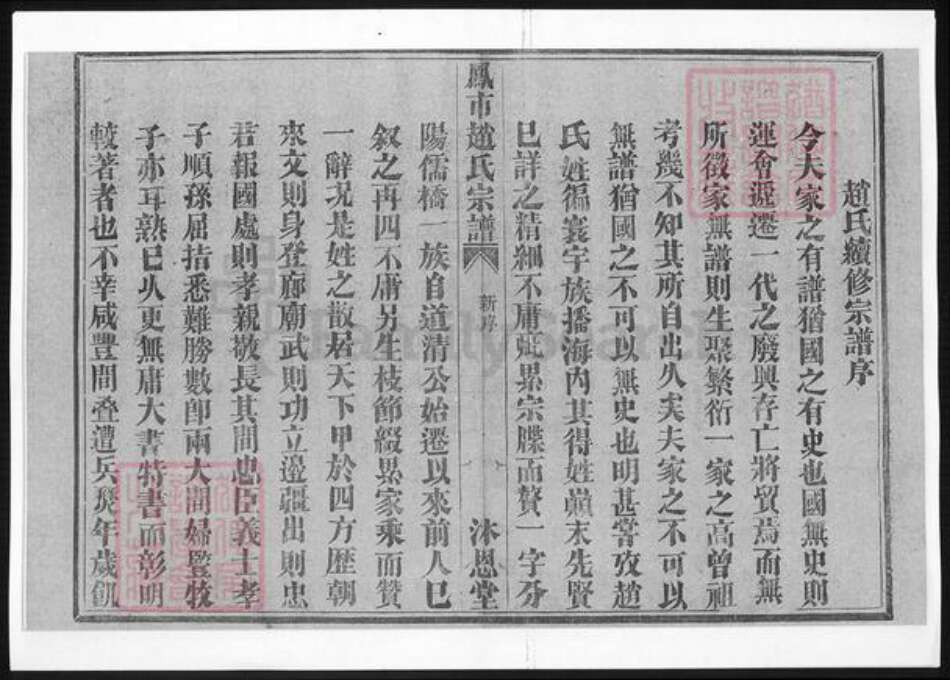 趙氏續修宗譜序
今夫家之有譜猶國之有史也國無史則
運會遞遷一代之廢興存亡將貿焉而無
所徵家無譜則生聚繁衍一家之高曾祖
考幾不知其所自出久矣夫家之不可以
無譜猶國之不可以無史也明甚嘗攷趙
氏姓徧寰宇族播海內其得姓巔末先賢
已詳之精細不庸蚳累宗牒而贅一字矧
鳳市趙氏宗譜 新序 沐恩堂
陽儒橋一族自道清公始遷以來前人已
叙之再四不庸另生枝節綴累家乘而贊
一辭况是姓之散居天下甲於四方歷朝
來文則身登廊廟武則功立邊疆出則忠
君報國處則孝親敬長其間忠臣義士孝
子順孫屈指悉難勝數卽兩大間婦豎牧
子亦耳熟已久更無庸大書特書而彰明
較著者也不幸咸豐間叠遭兵燹年歲飢
FamilySearch